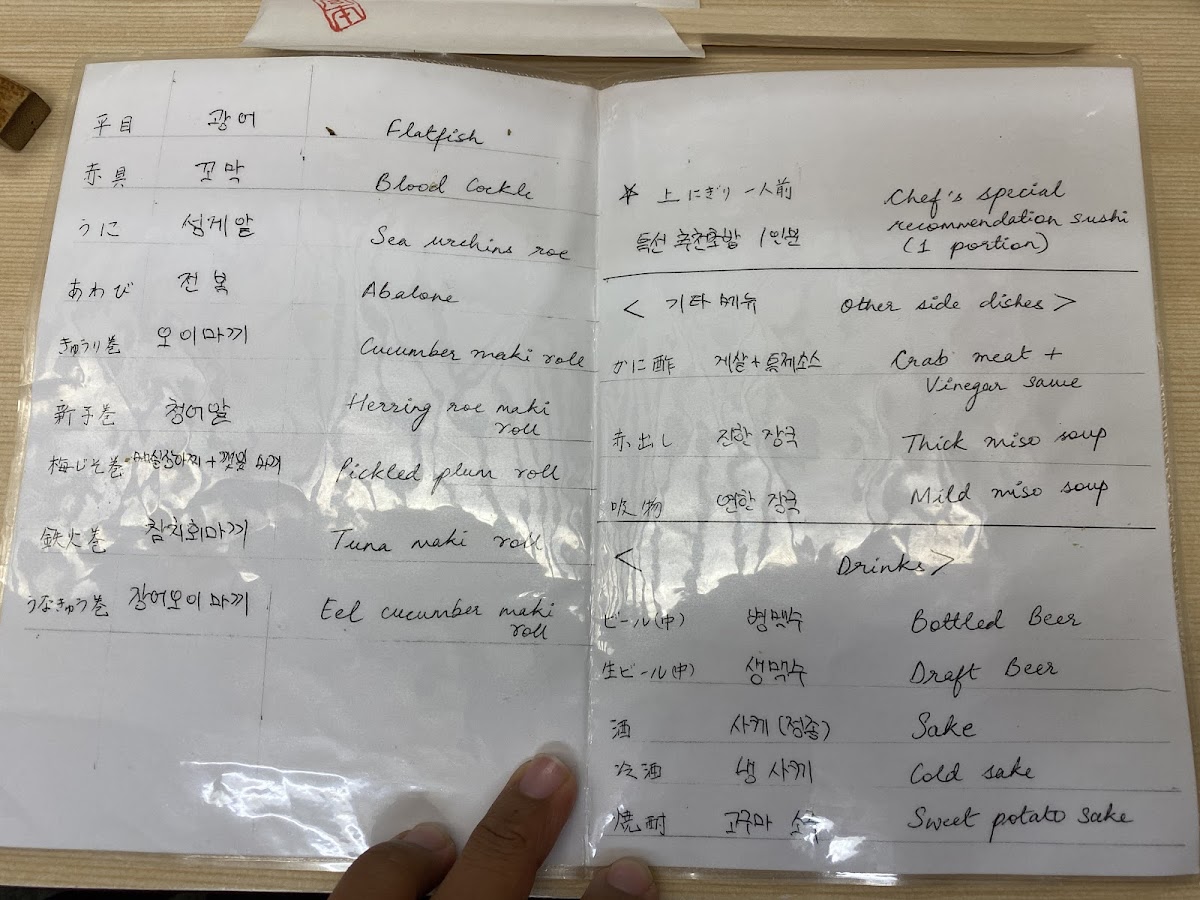 平目 광어 Flatfish
赤貝 꼬막 Blood Cockle
うに 성게알 Sea urchins roe
あわび 전복 Abalone
きゅうり巻 오이마끼 Cucumber maki roll
新子巻 청어알 Herring roe maki
roll
梅じそ巻 Pickled plum roll
鉄火巻 참치회마끼 Tuna maki roll
うなきゅう巻 장어오이마끼 Eel cucumber maki
roll
☆ 上にぎり 一人前 Chef's special
recommendation sushi
특선 추천초밥 1인분 (1 portion)
< 기타메뉴 Other side dishes >
かに酢 게살+특제소스 Crab meat +
Vinegar sauce
赤出し 진한 장국 Thick miso soup
吸物 연한 장국 Mild miso soup
< Drinks >
ビール(中) 병맥주 Bottled Beer
生ビール(中) 생맥주 Draft Beer
酒 사케(정종) Sake
冷酒 냉 사케 Cold sake
焼酎 고구마 소주 Sweet potato sake